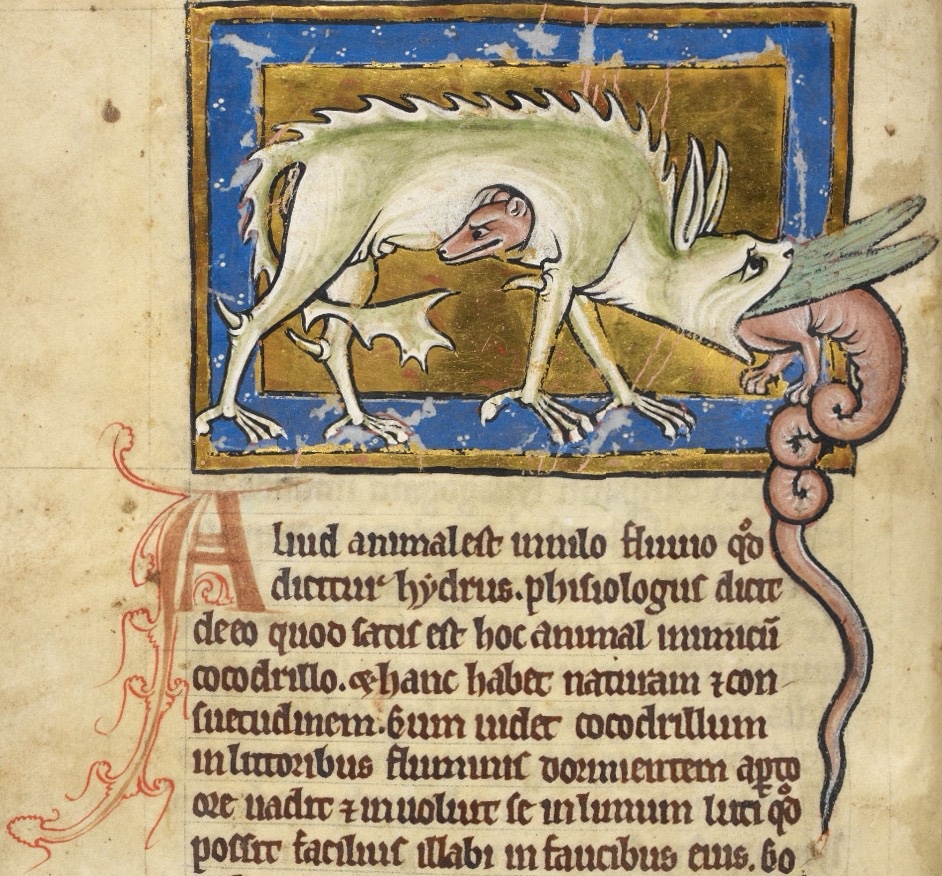 Aliud animal est in nilo fluuio qd̊
dicitur hẏdrus. phisiologus dicit
de eo quod satis est hoc animal inimicū
cocodrillo. ⁊ hanc habet naturam ⁊ con
suetudinem. Cum uidet cocodrillum
in littoribus fluminis dormientem apto
ore uadit ⁊ inuoluit se in limum luti qd̊
possit facilius illabi in faucibus eius. Co